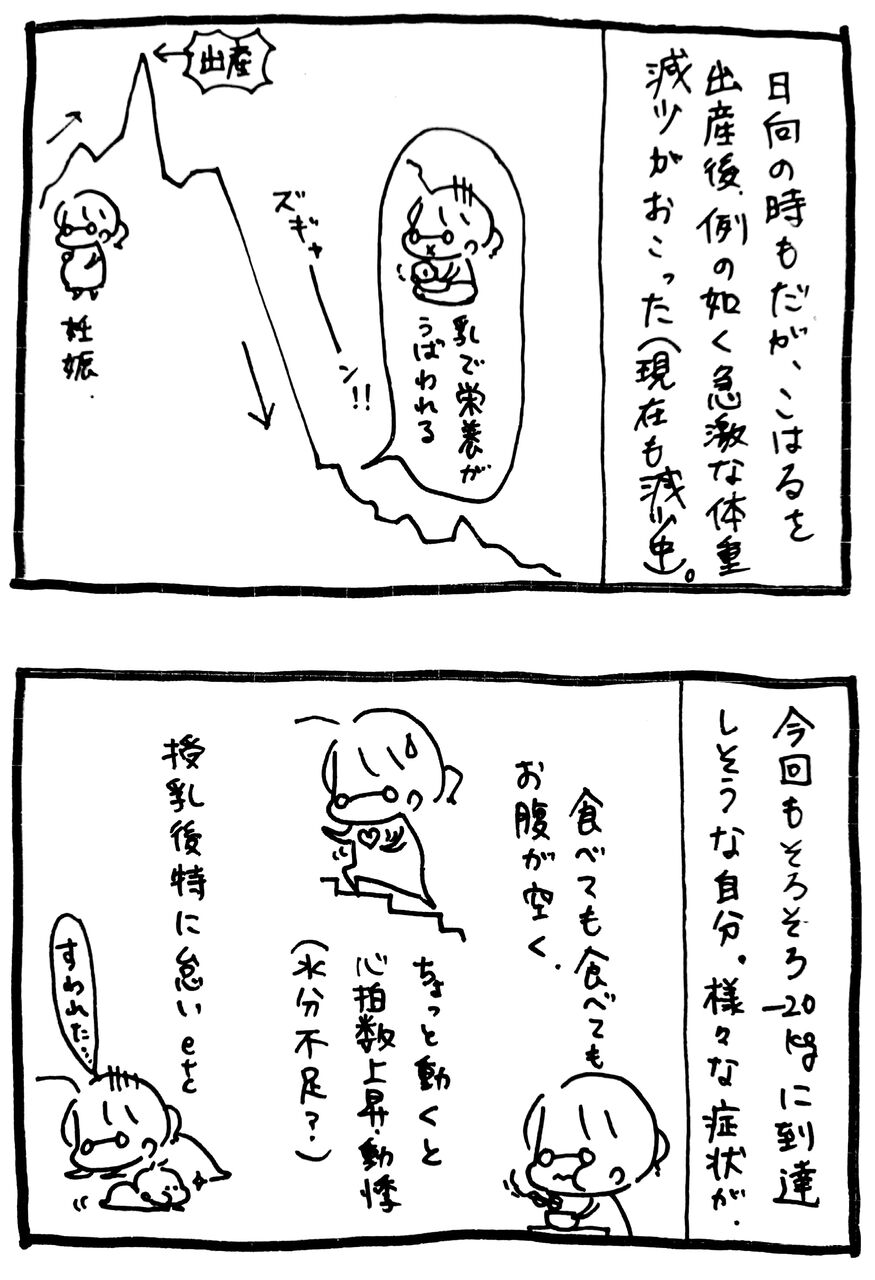 日向の時もだが、こはるを
出産後、例の如く急激な体重
減少がおこった(現在も減少中)。
乳で栄養が
うばわれる
ズギャーン!!
出産
妊娠
今回もそろそろ-20kgに到達
しそうな自分。様々な症状が.
食べても食べても
お腹が空く.
ちょっと動くと
心拍数上昇・動悸
(水分不足?)
授乳後特に怠い etc
すわれた…